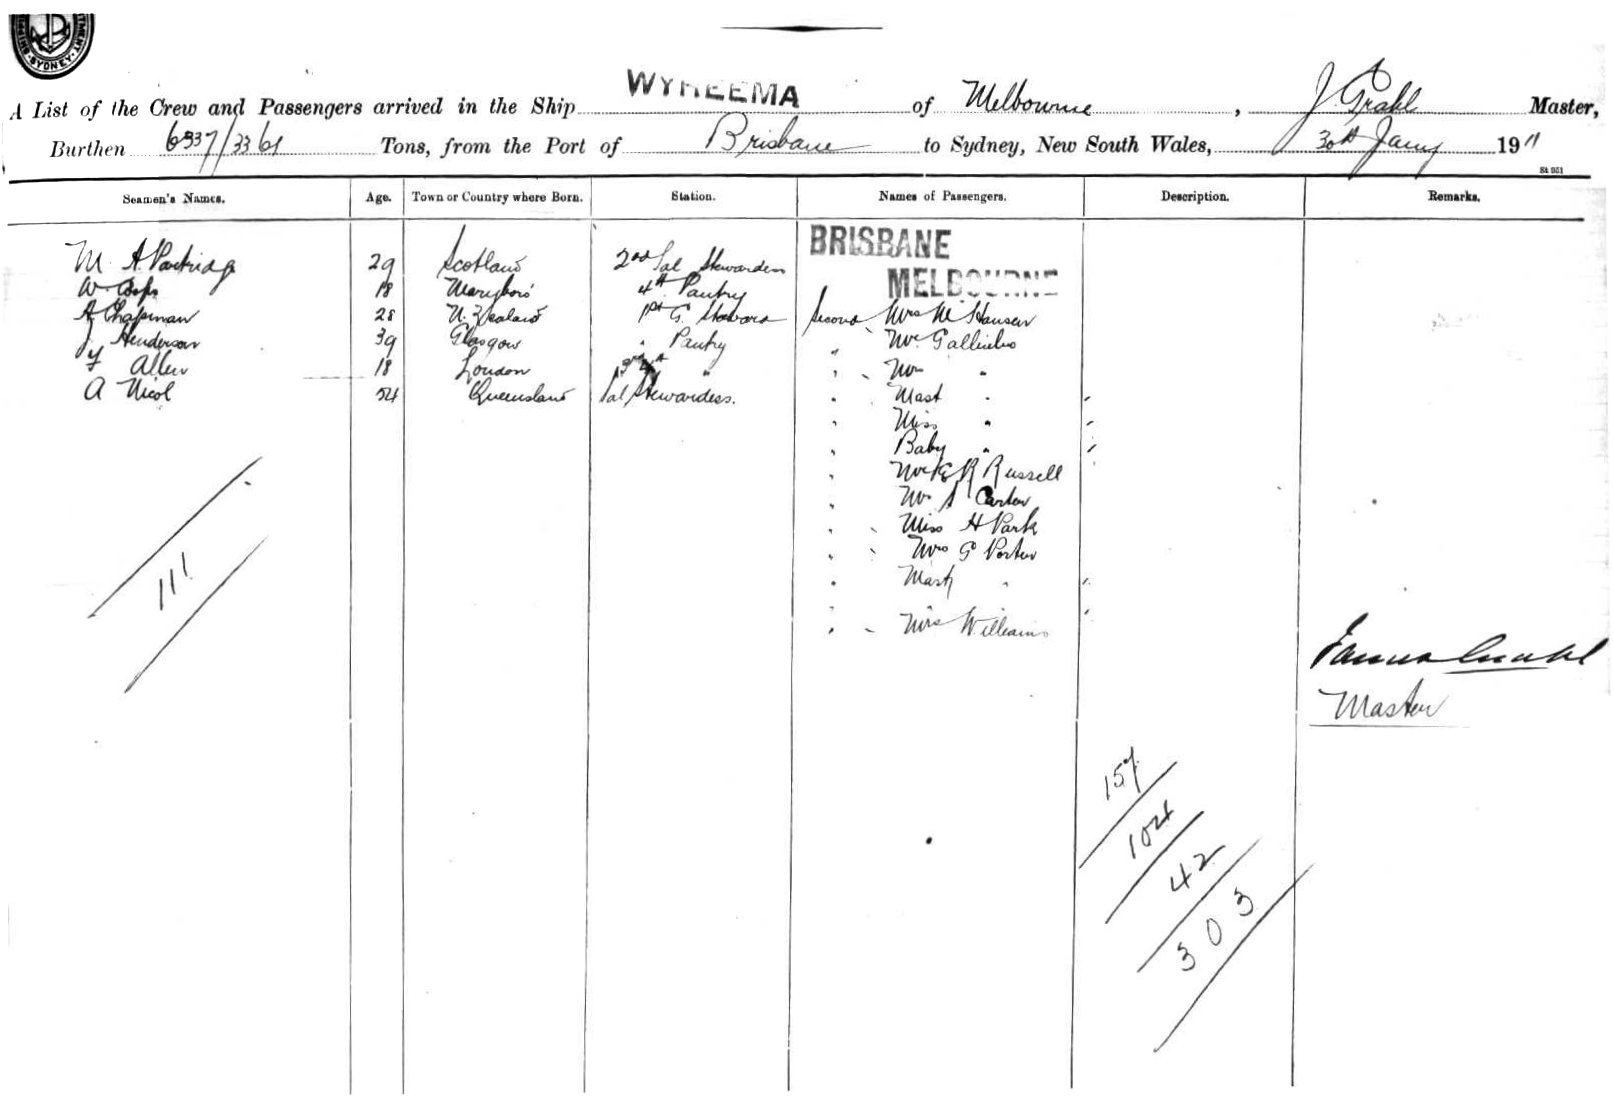 SYDNEY
A List of the Crew and Passengers arrived in the Ship WYREEMA of Melbourne, J. Grahl Master,
Burthen 6337/3361 Tons, from the Port of Brisbane to Sydney, New South Wales, 30th Jany 1911
St 951
Seamen's Names. Age. Town or Country where Born. Station. Names of Passengers. Description. Remarks.
BRISBANE
MELBOURNE
M. A. Partridge 29 Scotland 2nd Sal Stewardess
W 18 Maryboro 4th Pantry
A. Chapman 28 N. Zealand 1st G. Steward Second Mrs M Hansen
J. Henderson 39 Glasgow " Pantry " Mr
Allen 18 London " " Mrs "
A Nicol 54 Queensland Sal Stewardess. " Mast "
" Miss "
" Baby "
" Mr R Russell
" Mr S Carter
" " Miss H Park
" " Mrs G Porter
" Mast "
" " Mrs Williams
111
James Grahl
Master
157
104
42
303